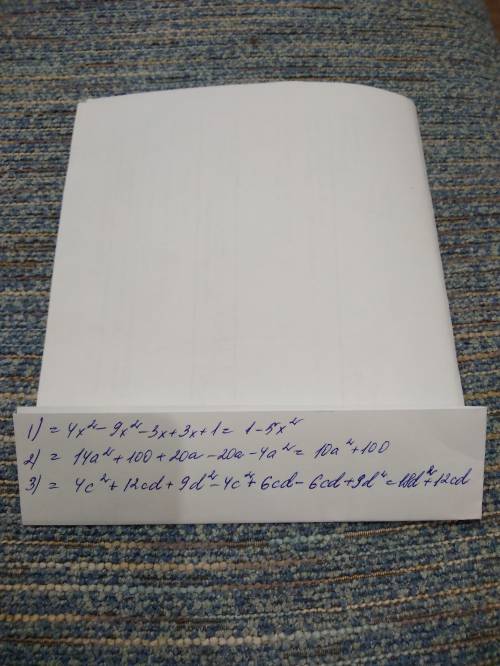 1) = 4x² - 9x² - 3x + 3x + 1 = 1 - 5x²
2) = 14a² + 100 + 20a - 20a - 4a² = 10a² + 100
3) = 4c² + 12cd + 9d² - 4c² + 6cd - 6cd + 9d² = 18d² + 12cd